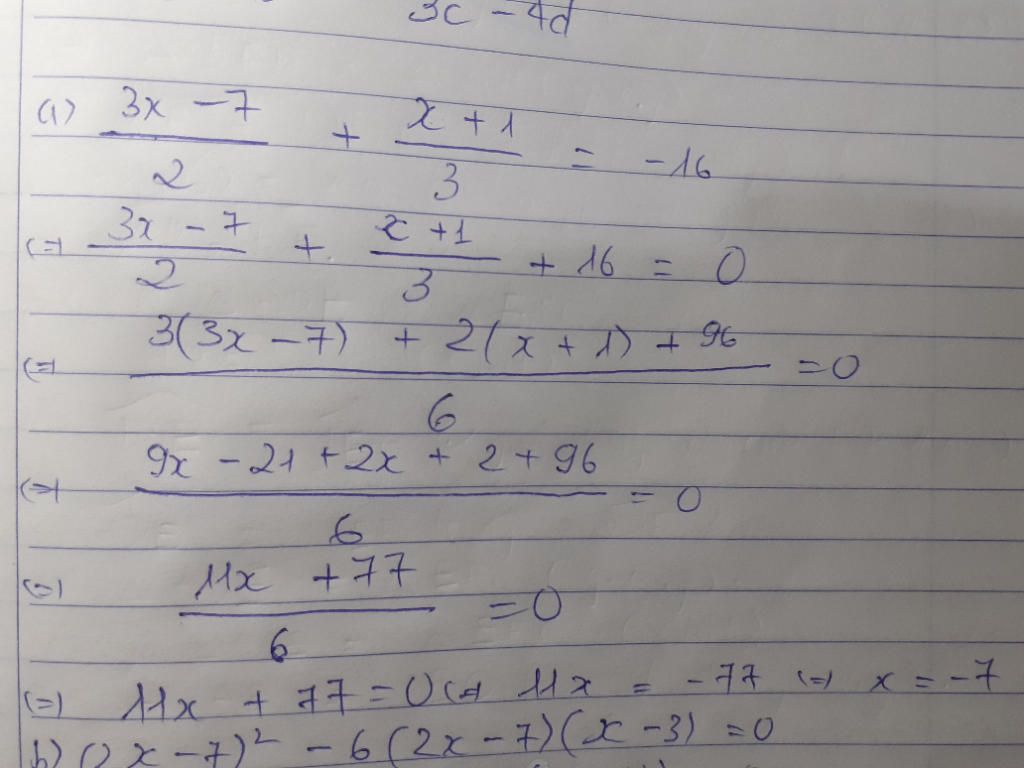 3c - 4d
(1) (3x - 7)/2 + (x + 1)/3 = -16
(=) (3x - 7)/2 + (x + 1)/3 + 16 = 0
(=) (3(3x - 7) + 2(x + 1) + 96)/6 = 0
(=) (9x - 21 + 2x + 2 + 96)/6 = 0
(=) (11x + 77)/6 = 0
(=) 11x + 77 = 0 (=) 11x = -77 (=) x = -7
b) (2x - 7)² - 6(2x - 7)(x - 3) = 0